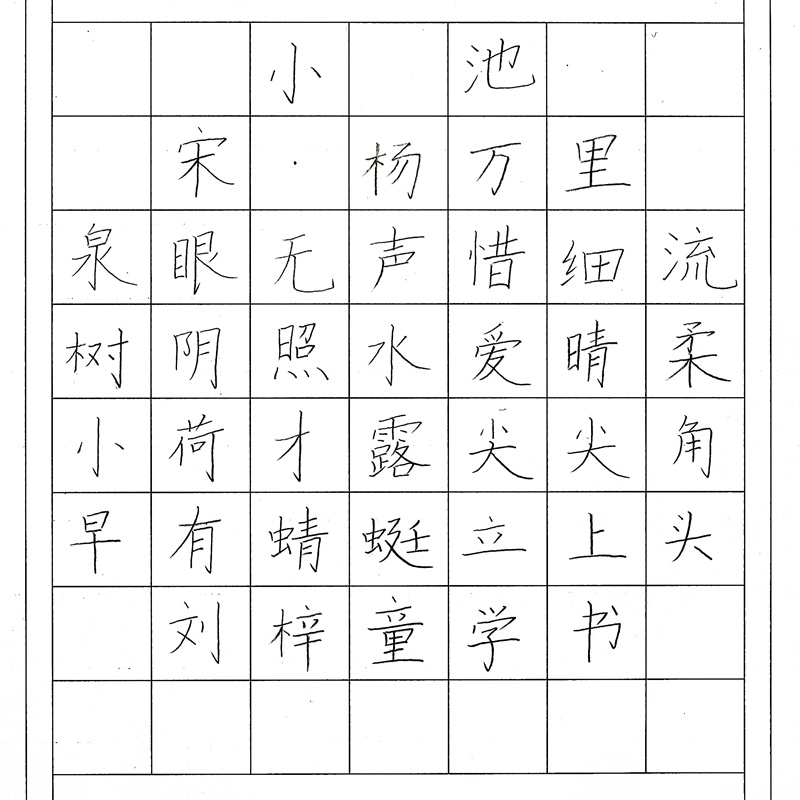 小池
宋·杨万里
泉眼无声惜细流
树阴照水爱晴柔
小荷才露尖尖角
早有蜻蜓立上头
刘梓童学书